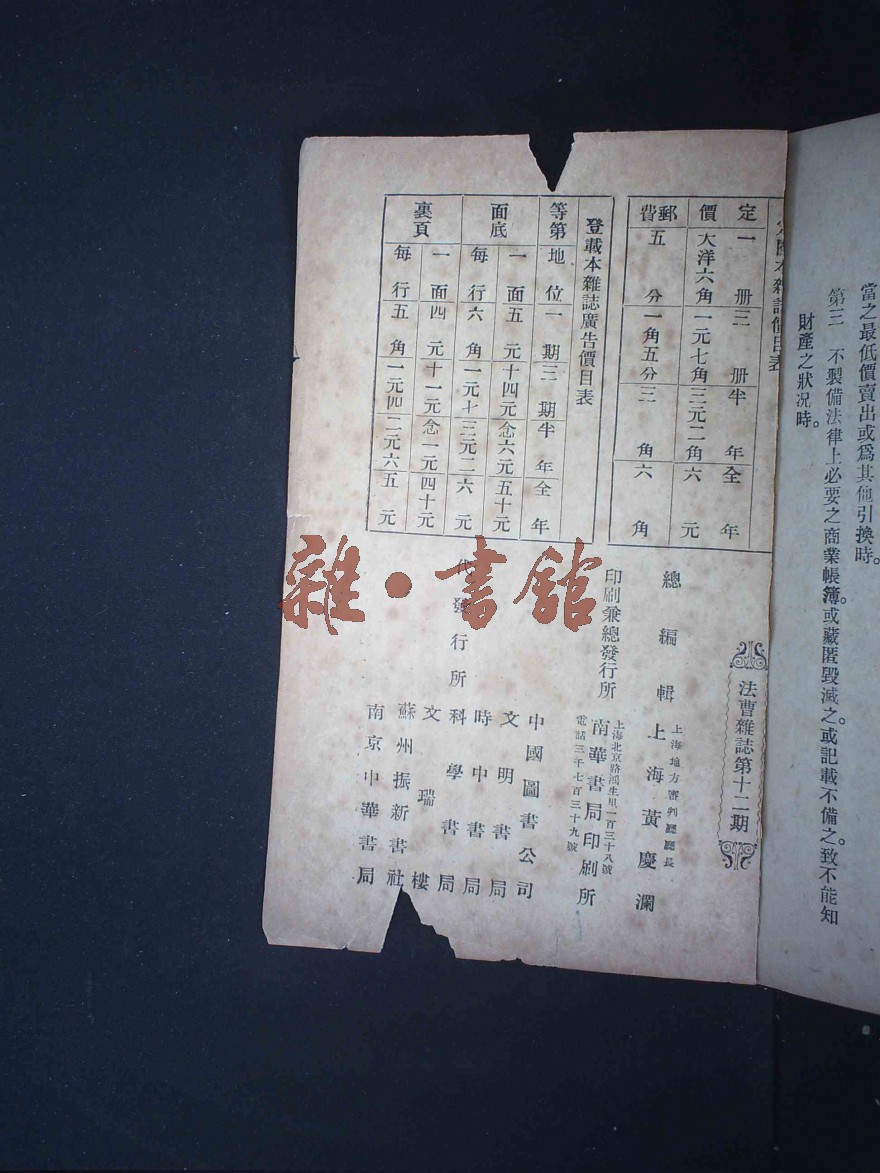 當之最低價賣出或爲其他引換時。
第三 不製備法律上必要之商業帳簿。或藏匿毀滅之。或記載不備之。致不能知
財產之狀况時。
本雜誌價目表
定 一册 三册 半年 全年
價 大洋六角 一元七角 三元二角 六元
郵費 五分 一角五分 三角 六角
登載本雜誌廣告價目表
等第 地位 一期 三期 半年 全年
面底 一面 五元 十四元 念六元 五十元
每行 六角 一元七 三元二 六元
裏頁 一面 四元 十一元 念一元 四十元
每行 五角 一元四 二元六 五元
法曹雜誌第十二期
總編輯 上海地方審判廳廳長
上海黃慶瀾
印刷兼總發行所 上海北京路鴻生里一百三十八號
南華書局印刷所
電話三千七百三十九號
代發行所 中國圖書公司
文明書局
時中書局
科學書局
文瑞樓
蘇州振新書社
南京中華書局
雜·書館